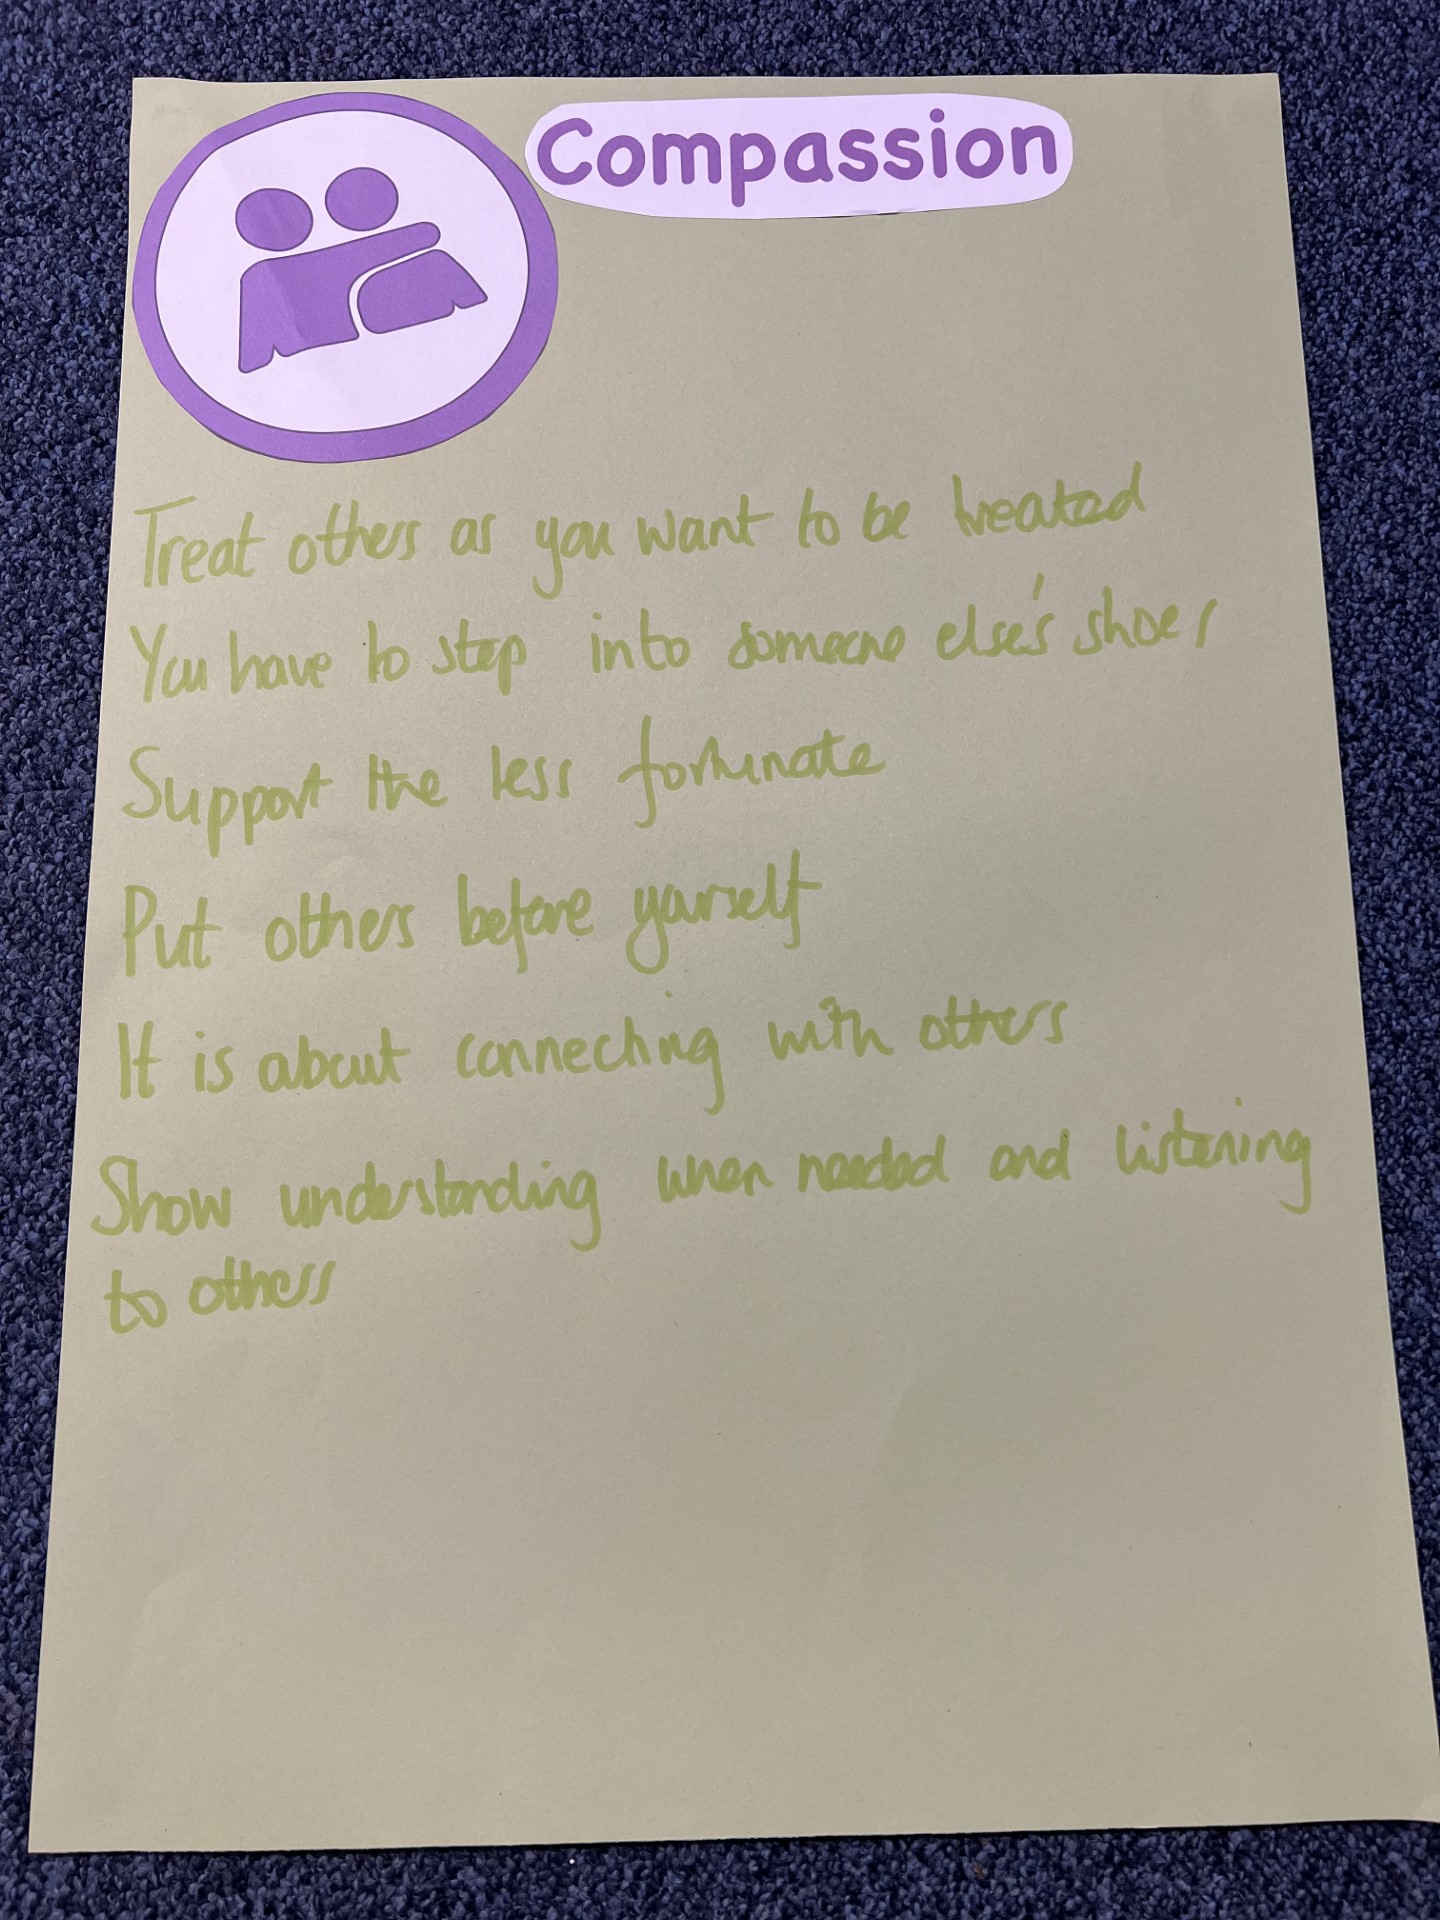 Compassion
Treat others as you want to be treated
You have to step into someone else's shoes
Support the less fortunate
Put others before yourself
It is about connecting with others
Show understanding when needed and listening
to others